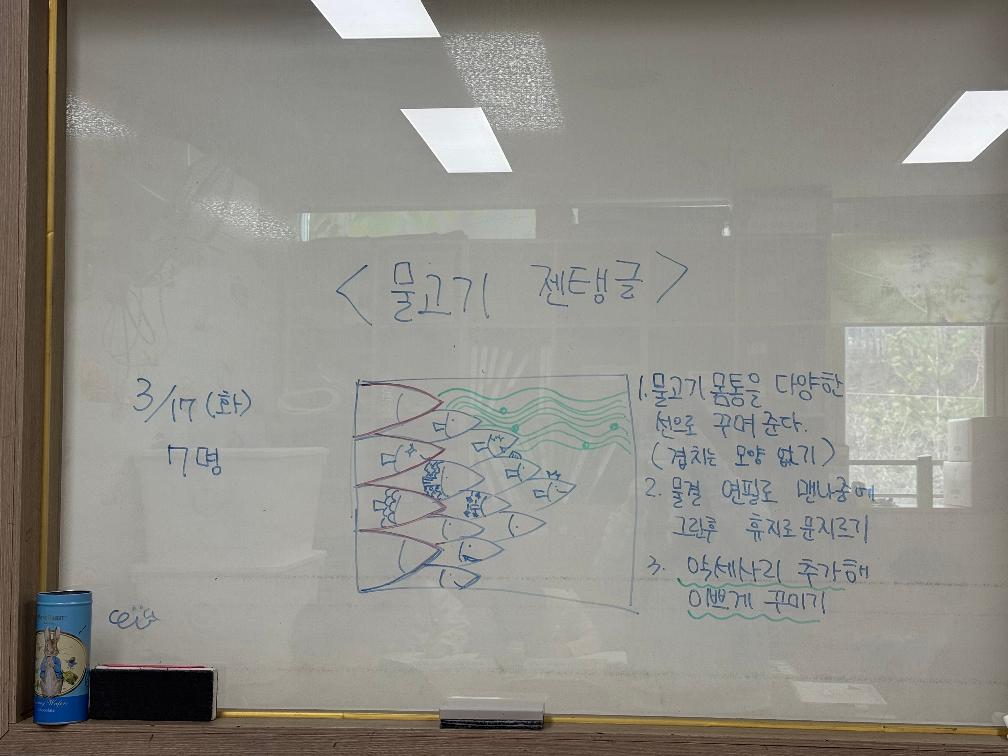 <물고기 젠탱글>
3/17 (화)
7명
1. 물고기 몸통을 다양한
선으로 꾸며준다.
(겹치는 모양 없기)
2. 물결 연필로 맨나중에
그린후 휴지로 문지르기
3. 악세사리 추가해
이쁘게 꾸미기